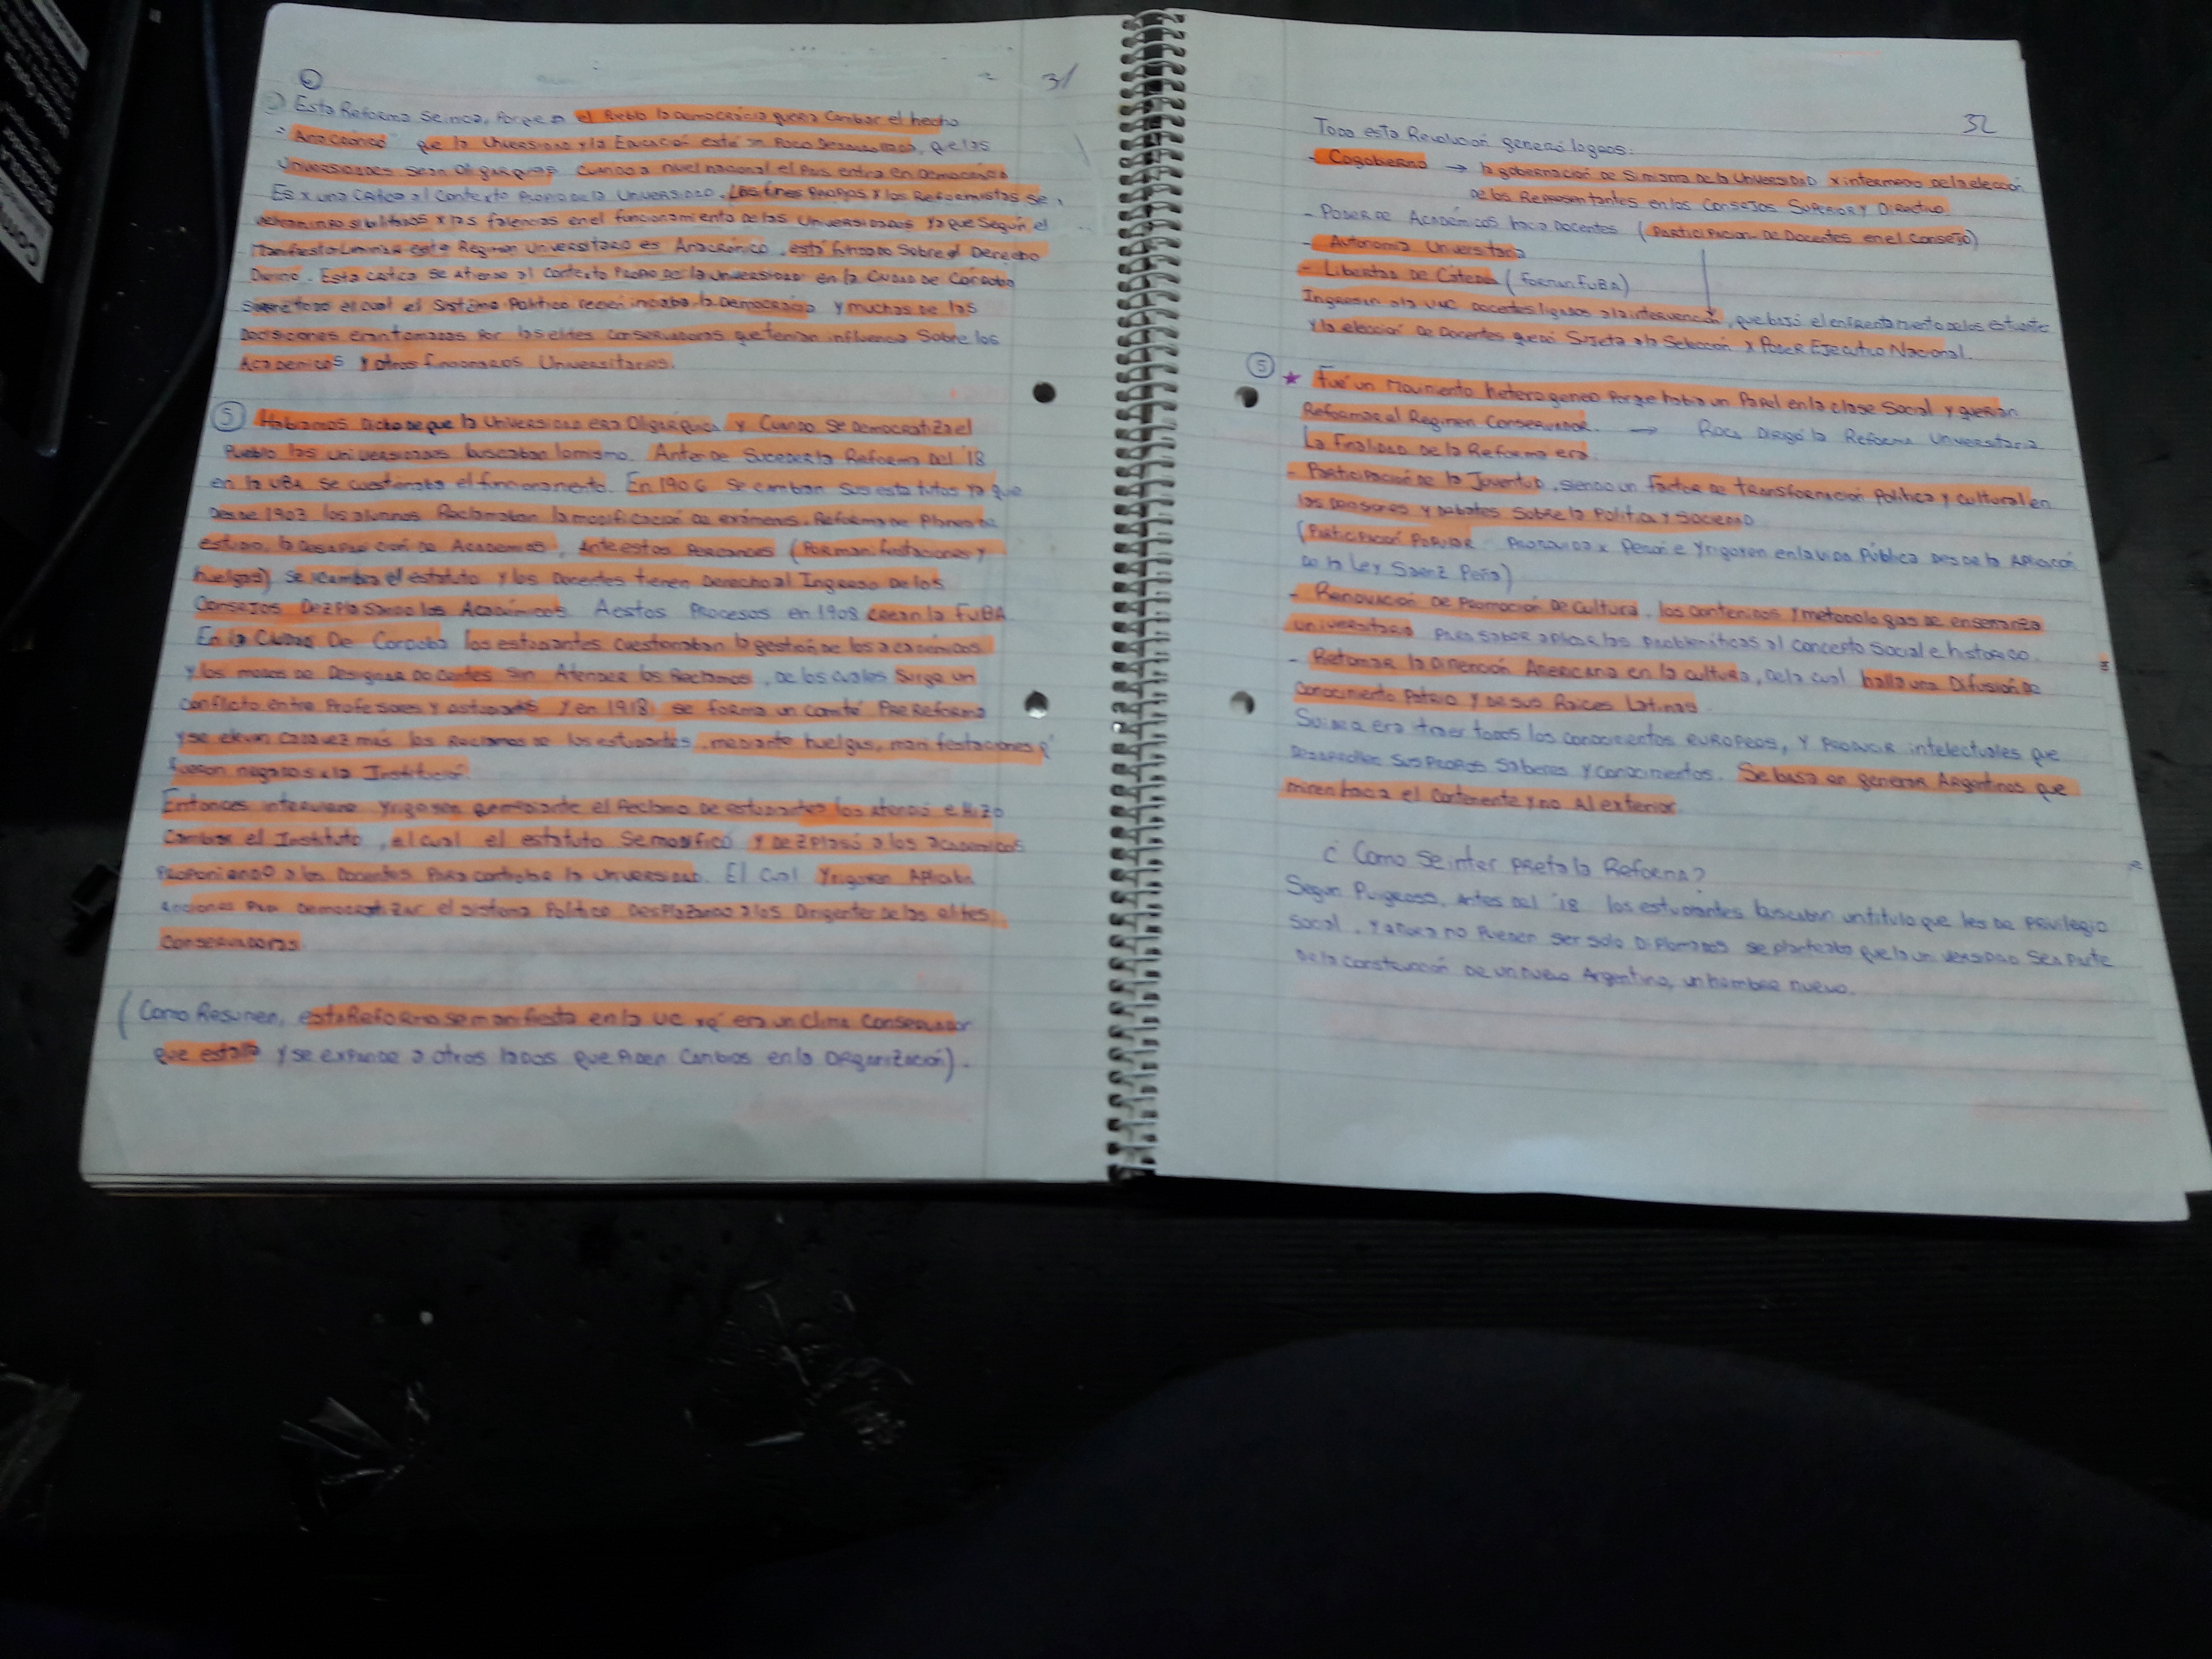 31
Esta Reforma se inicia, Porque el Pueblo la Democracia queria Cambiar el hecho
" Anacrónico " que la Universidad y la Educación está un Poco Desarrollada, que las
Universidades sean Oligarquicas Cuando a nivel nacional el País entra en Democracia
Es x una critica al Contexto Propio de la Universidad. Los fines Propios y los Reformistas se
x las falencias en el funcionamiento de las Universidades Ya que Según el
Manifiesto Liminar este Regimen Universitario es Anacrónico, está fundado Sobre el Derecho
Divino. Esta critica se atiende al Contexto Propio de la Universidad en la Ciudad de Córdoba
Sobre todo el cual el Sistema Político recien iniciaba la Democracia y muchas de las
Decisiones eran tomadas Por las elites conservadoras que tenian influencia Sobre los
Académicos y otros funcionarios Universitarios.
5 Habiamos Dicho de que la Universidad era Oligárquica y Cuando Se Democratiza el
Pueblo las universidades buscaban lo mismo. Antes de Suceder la Reforma Del '18
en la UBA Se cuestionaba el funcionamiento. En 1906 Se cambian Sus estatutos Ya que
Desde 1903 los alumnos Reclamaban la modificación de exámenes, Reforma de Planes de
estudio, la Desaparición de Academias, Ante estos Percances (Forman
huelgas) Se cambia el estatuto y los Docentes tienen Derecho al Ingreso De los
Consejos Dezplasando los Académicos. A estos Procesos en 1908 crean la FUBA
En la Ciudad De Cordoba los estudiantes cuestionaban la gestión de los académicos
y los modos de Designar Docentes Sin Atender los Reclamos, De los cuales Surge un
Conflicto entre Profesores y estudiantes Y en 1918, se forma un comité Pro Reforma
y se elevan cada vez más los Reclamos de los estudiantes, mediante huelgas, manifestaciones q'
fueron negados a la Institución.
Entonces interviene Yrigoyen que mediante el Reclamo de estudiantes los atendió e Hizo
Cambiar el Instituto, el cual el estatuto Se modificó y dezplasó a los académicos
Proponiendo a los Docentes Para controlar la Universidad. El Cual Yrigoyen Aplicaba
acciones Para Democratizar el sistema Político Desplazando a los Dirigentes de las elites
Conservadoras.
(Como Resumen, esta Reforma se manifiesta en la UC xq' era un Clima Conservador
que estalla y se expande a otros lados que Piden Cambios en la Organización).
32
Toda esta Revolución generó logros:
- Cogobierno → la gobernación de Si misma de la Universidad x intermedio de la elección
de los Representantes en los Consejos Superior y Directivo
- Poder de Académicos hacia Docentes (Participacion De Docentes en el Consejo)
- Autonomia Universitaria
- Libertad de Cátedra (Forman FUBA)
Ingresan a la UNC docentes ligados a la intervención, que bajó el enfrentamiento de los estudiante
y la elección de Docentes quedó Sujeta a la Selección x Poder Ejecutivo Nacional.
5 ★ Fué un Movimiento heterogeneo Porque habia un Papel en la clase Social y querian
Reformar el Regimen Conservador. → Roca Dirigió la Reforma Universitaria
La Finalidad de la Reforma era:
- Participación de la Juventud, siendo un factor de transformación Politica y cultural en
las y debates Sobre la Politica y Sociedad
(Participación Popular Promovida x Perón e Yrigoyen en la vida Pública desde la Aplicación
de la Ley Saenz Peña)
- Renovación de Promoción de Cultura, los contenidos y metodologias de enseñanza
universitaria Para Saber aplicar las Problemáticas al concepto Social e historico.
- Retomar la Dimención Americana en la cultura, de la cual halla una Difusión de
Conocimiento Patrio y de sus Raíces Latinas.
Su idea era traer todos los conocimientos EUROPEOS, y PRODUCIR intelectuales que
Desarrollen Sus Propios Saberes y conocimientos. Se basa en generar Argentinos que
miren hacia el Continente y no Al exterior.
¿ Como Se interpreta la Reforma?
Segun Puigross, antes del '18 los estudiantes buscaban un titulo que les de Privilegio
Social, y ahora no Pueden Ser Solo Diplomados se planteaba que la universidad Sea Parte
De la Construcción de un nuevo Argentino, un hombre nuevo.